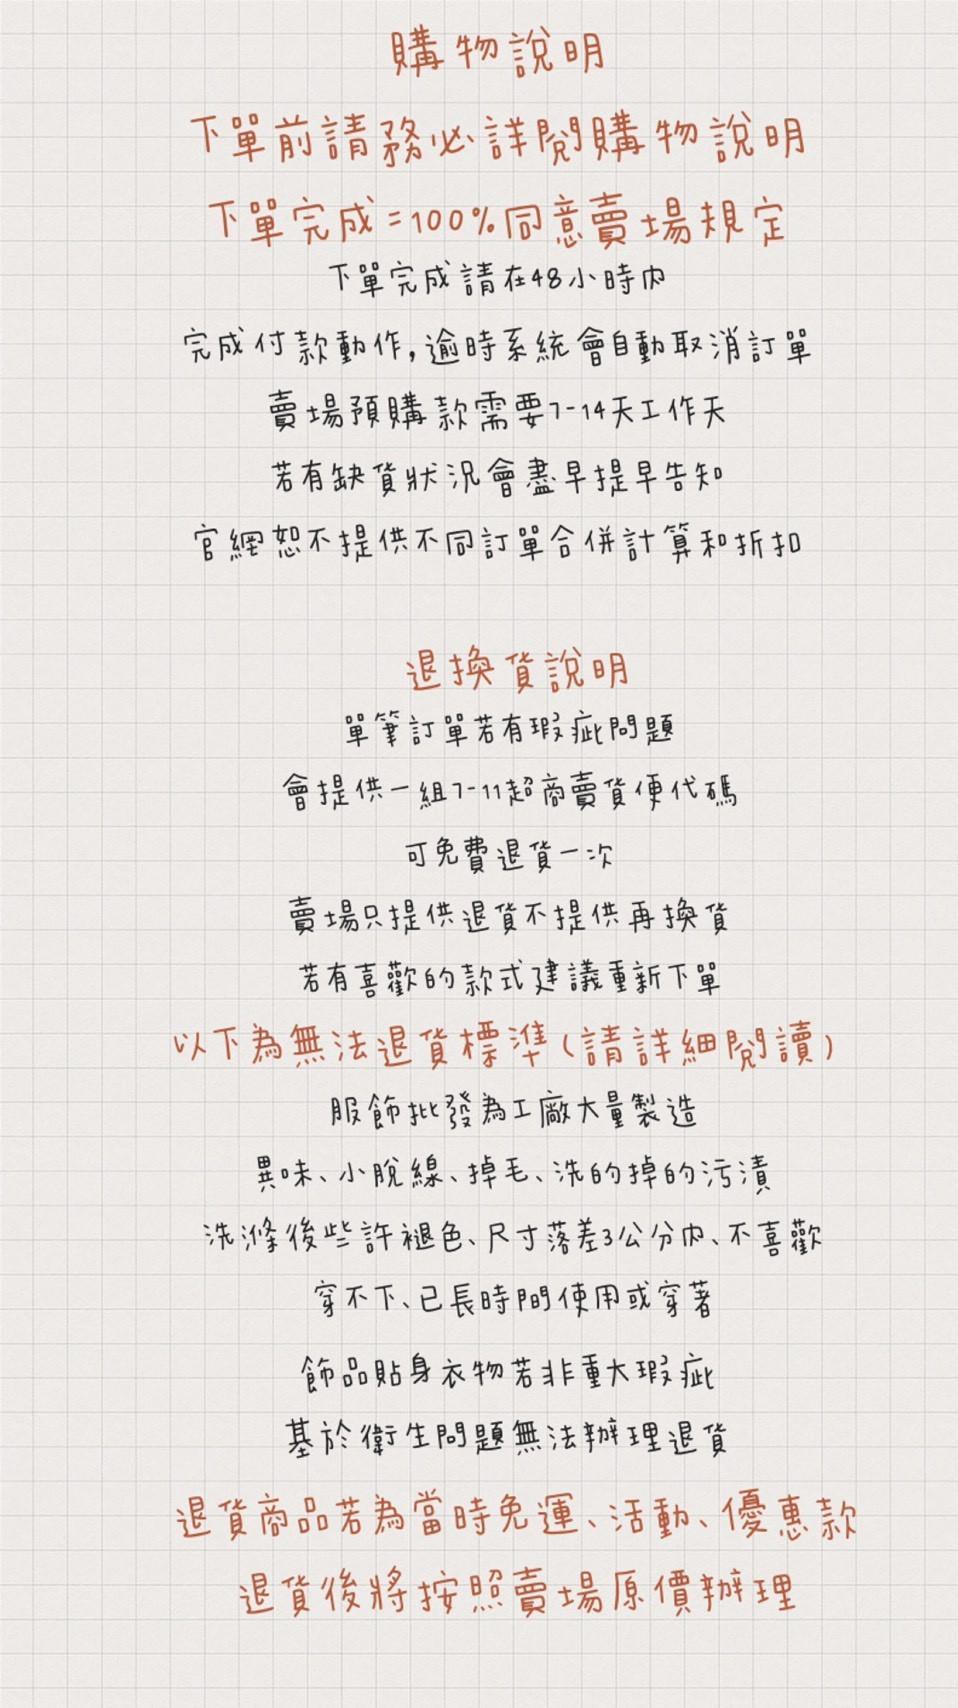 購物說明
下單前請務必詳閱購物說明
下單完成=100%同意賣場規定
下單完成請在48小時內
完成付款動作,逾時系統會自動取消訂單
賣場預購款需要7-14天工作天
若有缺貨狀況會盡早提早告知
官網恕不提供不同訂單合併計算和折扣
退換貨說明
單筆訂單若有瑕疵問題
會提供一組7-11超商賣貨便代碼
可免費退貨一次
賣場只提供退貨不提供再換貨
若有喜歡的款式建議重新下單
以下為無法退貨標準(請詳細閱讀)
服飾批發為工廠大量製造
異味、小脫線、掉毛、洗的掉的污漬
洗滌後些許褪色、尺寸落差3公分內、不喜歡
穿不下、已長時間使用或穿著
飾品貼身衣物若非重大瑕疵
基於衛生問題無法辦理退貨
退貨商品若為當時免運、活動、優惠款
退貨後將按照賣場原價辦理